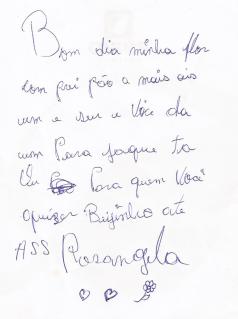 Bom dia minha flor
com prei pão a mais ais
um e seu e Você da
um Para jaque ta
Para quem Você
quizer Beijinho até
ASS Rosangela